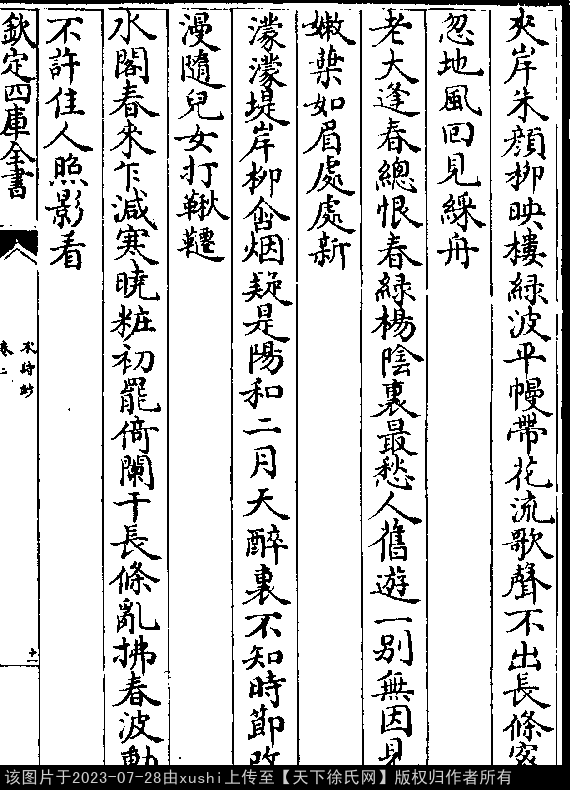 夾岸朱顔抑映樓緑波平幔帶花流歌聲不出長條密
忽地風回見綵舟
老大逢春總恨春緑楊陰裏最愁人舊遊一别無因見
嫩葉如眉處處新
濛濛堤岸柳含烟疑是陽和二月天醉裏不知時節改
漫隨兒女打鞦韆
水閣春來乍減寒曉粧初罷倚闌干長條亂拂春波動
不許佳人照影看
欽定四庫全書
卷二
十二
该图片于2023-07-28由xushi上传至【天下徐氏网】版权归作者所有